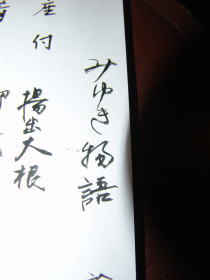 みゆき物語
座付
揚出大根